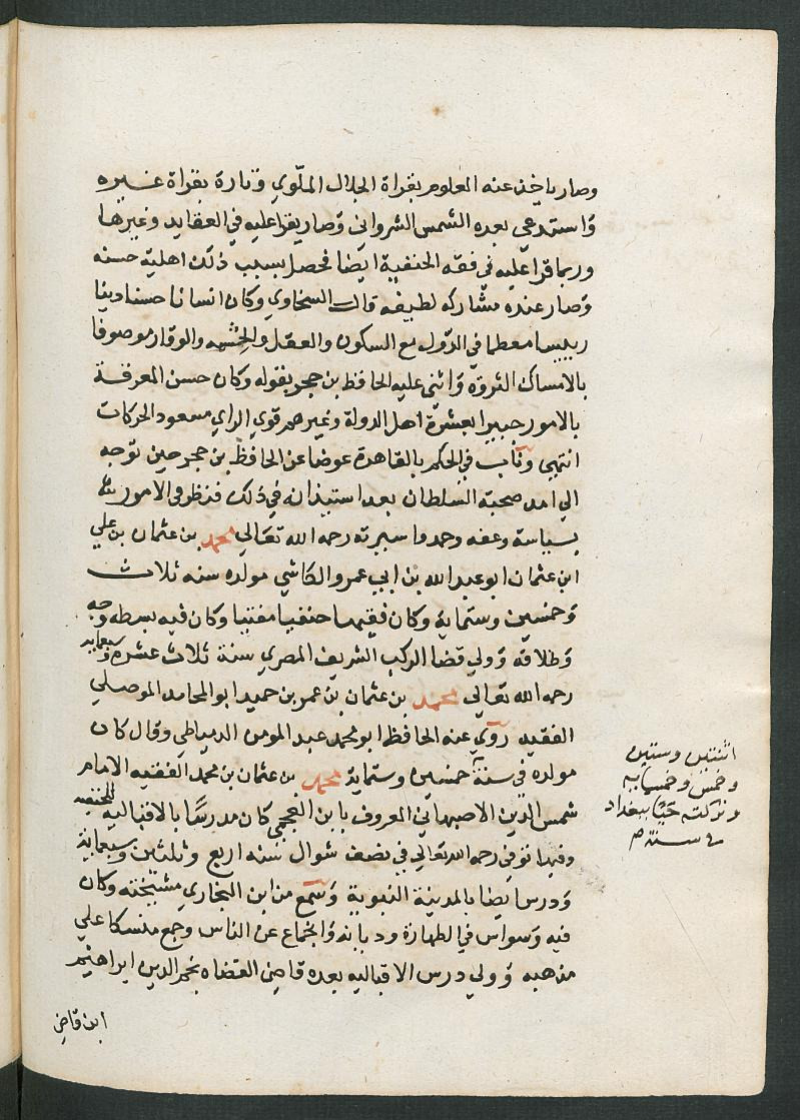 وصار ياخذ عنه العلوم بقراة الجلال الملّوي وتارة بقراة غيره
واستدعي بعده الشمس الشرواني وصار يقرا عليه في العقايد وغيرها
وربما قرا عليه في فقه الحنفية ايضا فحصل بسبب ذلك اهلية حسنه
وصار عنده مشاركه لطيفه قال السخاوي وكان انسانا حسنا دينا
رييسا معظما في الدول مع السكون والعقل والحشمه والوقار موصوفا
بالامساك الثروة واثني عليه الحافظ بن حجر بقوله وكان حسن المعرفة
بالامور خبيرا بعشرة اهل الدولة وغيرهم قوي الراي مسعود الحركات
انتهي وناب في الحكم بالقاهرة عوضا عن الحافظ بن حجر حين توجه
الي امد صحبة السلطان بعد استيذانه في ذلك فنظر في الامور
بسياسة وعفه وحمدوا سيرته رحمه الله تعالي محمد بن عثمان بن علي
ابن عثمان ابو عبد الله بن ابي عمرو الكاشي مولده سنه ثلاث
وخمسين وستماية وكان فقيها حنفيا مفتيا وكان فيه بسطه وجه
وطلاقه وولي قضا الركب الشريف المصري سنة ثلاث عشرة وسبعمايه
رحمه الله تعالي محمد بن عثمان بن عمر بن حميد ابو المحامد الموصلي
الفقيه روي عنه الحافظ ابو محمد عبد المومن الدمياطي وقال كان
مولده في سنة خمسين وستماية محمد بن عثمان بن محمد الفقيه الامام
شمس الدين الاصبهاني المعروف بابن العجمي كان مدرسًا بالاقباليه للحنفيه
وفيها توفي رحمه الله تعالي في نصف شوال سنه اربع وثلثين وسبعماية
ودرس ايضا بالمدينة النبوية وسمع من ابن البخاري مشيخته وكان
فيه وسواس في الطهارة وديانه وانجماع عن الناس وجمع منسكا علي
مذهبه وولي درس الاقباليه بعده قاضي القضاه نجم الدين ابراهيم
ابن قاضي
اثنتين وستين
وخمس وخمسمايه
وتركته حيًا ببغداد
في سنة